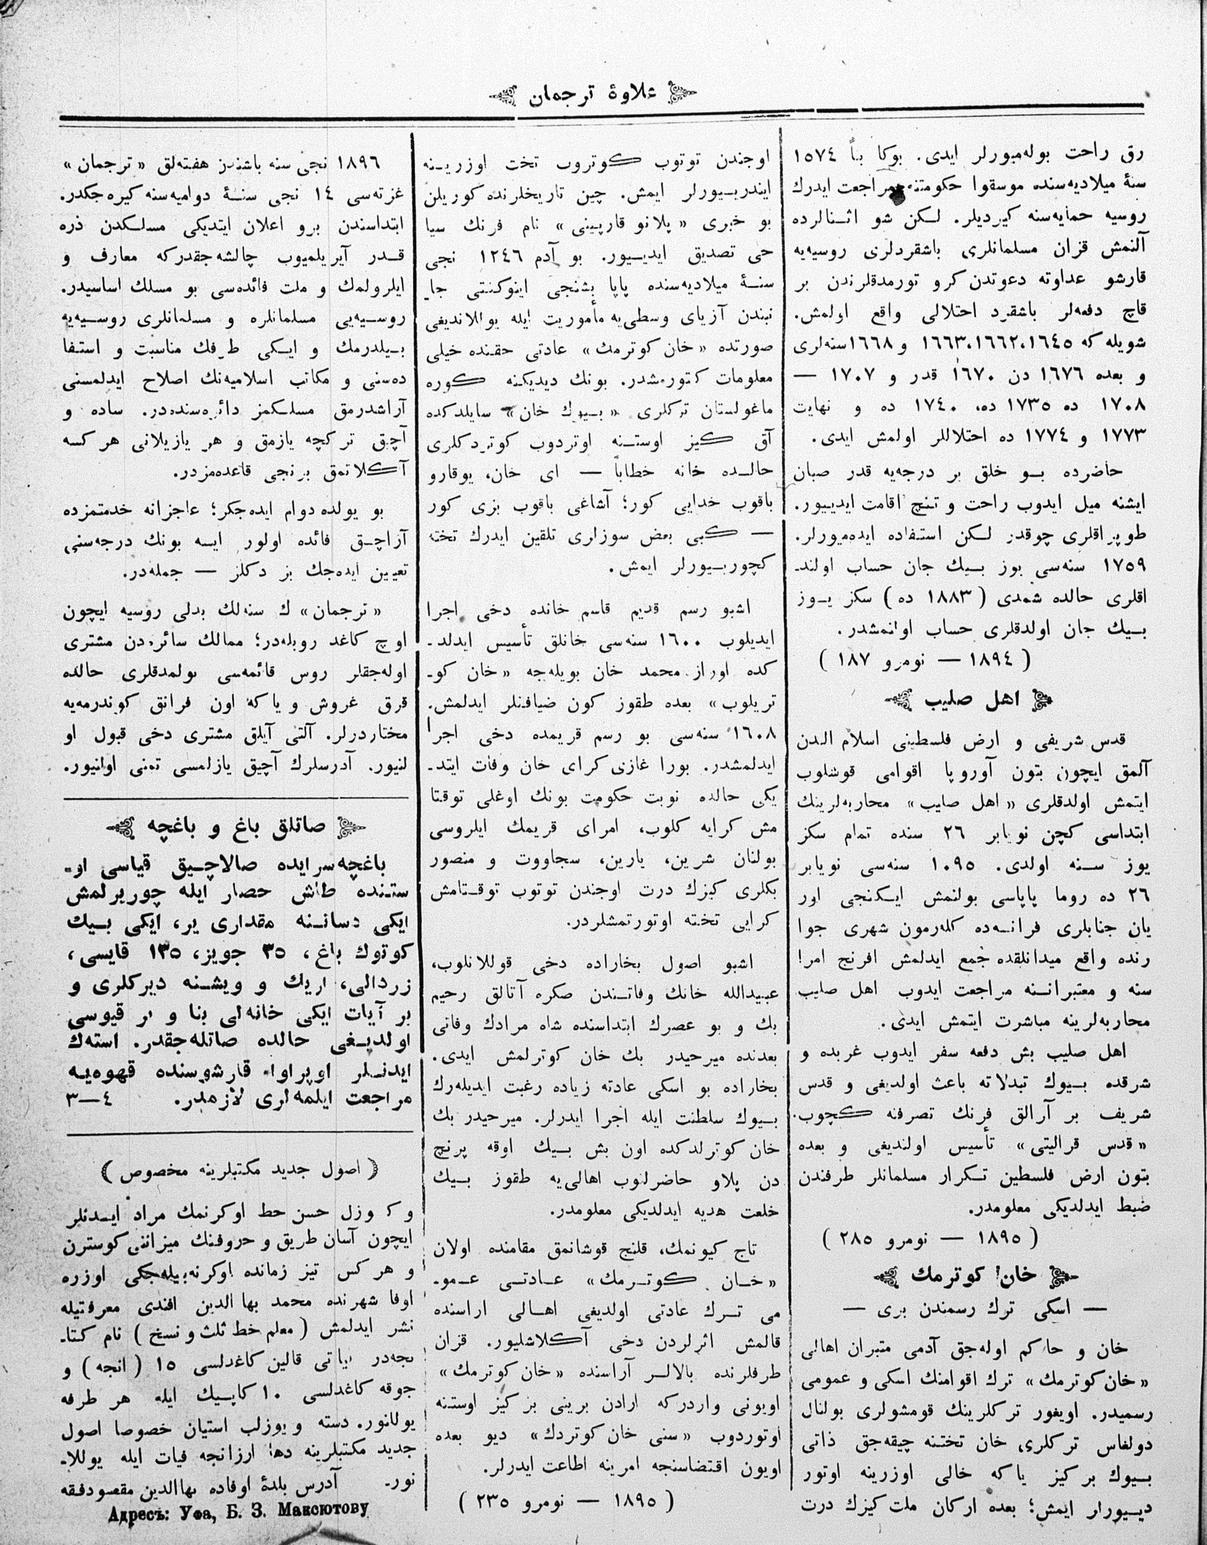 علاوهٔ ترجمان
رق راحت بوله‌میورلر ایدی. بوکا بناً ١٥٧٤
سنهٔ میلادیه‌سنده موسقوا حکومتنه مراجعت ایدرك
روسیه حمایه‌سنه کیردیلر. لکن شو اثنالرده
آلنمش قزان مسلمانلری باشقردلری روسیه‌یه
قارشو عداوته دعوتدن کرو تورمدقلرندن بر
قاچ دفعه‌لر باشقرد احتلالی واقع اولمش.
شویله که ١٦٤٥،١٦٦٢،١٦٦٣ و ١٦٦٨ سنه‌لری
و بعده ١٦٧٦ دن ١٦٧٠ قدر و ١٧٠٧ —
١٧٠٨ ده ١٧٣٥ ده، ١٧٤٠ ده و نهایت
١٧٧٣ و ١٧٧٤ ده احتلاللر اولمش ایدی.
حاضرده بو خلق بر درجه‌یه قدر صبان
ایشنه میل ایدوب راحت و تنچ اقامت ایدییور.
طوپراقلری چوقدر لکن استفاده ایده‌میورلر.
١٧٥٩ سنه‌سی یوز بیك جان حساب اولند-
اقلری حالده شمدی ( ١٨٨٣ ده ) سکز یوز
بیك جان اولدقلری حساب اولنمشدر.
( ١٨٩٤ — نومرو ١٨٧ )
اهل صلیب
قدس شریفی و ارض فلسطینی اسلام الندن
آلمق ایچون بتون آوروپا اقوامی قوشلوب
ایتمش اولدقلری « اهل صلیب » محاربه‌لرینك
ابتداسی کچن نویابر ٢٦ سنده تمام سکز
یوز سنه اولدی. ١٠٩٥ سنه‌سی نویابر
٢٦ ده روما پاپاسی بولنمش ایکنجی اور
یان جنابلری فرانسه‌ده کله‌رمون شهری جوا
رنده واقع میدانلقده جمع ایدلمش افرنج امرا
سنه و معتبرانه مراجعت ایدوب اهل صلیب
محاربه‌لرینه مباشرت ایتمش ایدی.
اهل صلیب بش دفعه سفر ایدوب غربده و
شرقده بیوك تبدلاته باعث اولدیغی و قدس
شریف بر آرالق فرنك تصرفنه کچوب
« قدس قرالیتی » تأسیس اولندیغی و بعده
بتون ارض فلسطین تکرار مسلمانلر طرفندن
ضبط ایدلدیکی معلومدر.
( ١٨٩٥ — نومرو ٢٨٥ )
خان کوترمك
— اسکی ترك رسمندن بری —
خان و حاکم اوله‌جق آدمی متبران اهالی
«خان کوترمك» ترك اقوامنك اسکی و عمومی
رسمیدر. اویغور ترکلرینك قومشولری بولنال
دولفاس ترکلری خان تختنه چیقه‌جق ذاتی
بیوك بر کیز یاکه خالی اوزرینه اوتور
دیورلر ایمش؛ بعده ارکان ملت کیزك درت
اوجندن توتوب کوتروب تخت اوزرینه
ایندریورلر ایمش. چین تاریخلرنده کوریلن
بو خبری « پلانو قارپینی » نام فرنك سیا
حی تصدیق ایدییور. بو آدم ١٢٤٦ نجی
سنهٔ میلادیه‌سنده پاپا بشنجی اینوکنتی جا-
نبندن آزیای وسطی‌یه مأموریت ایله یوللاندیغی
صورتده «خان کوترمك» عادتی حقنده خیلی
معلومات کتورمشدر. بونك دیدیکنه کوره
ماغولستان ترکلری « بیوك خان » سایلدکده
آق کیز اوستنه اوتردوب کوتردکلری
حالده خانه خطاباً — ای خان، یوقارو
باقوب خدایی کور؛ آشاغی باقوب بزی کور
— کبی بعض سوزلری تلقین ایدرك تخته
کچوریورلر ایمش.
اشبو رسم قدیم قاسم خانده دخی اجرا
ایدیلوب ١٦٠٠ سنه‌سی خانلق تأسیس ایدلد-
کده اوراز محمد خان بویله‌جه «خان کو-
تریلوب» بعده طقوز کون ضیافتلر ایدلمش.
١٦٠٨ سنه‌سی بو رسم قریمده دخی اجرا
ایدلمشدر. بورا غازی کرای خان وفات ایتد-
یکی حالده نوبت حکومت بونك اوغلی توقتا
مش کرایه کلوب، امرای قریمك ایلروسی
بولنان شرین، یارین، سجاووت و منصور
بکلری کیزك درت اوجندن توتوب توقتامش
کرایی تخته اوتورتمشلردر.
اشبو اصول بخاراده دخی قوللانلوب،
عبیدالله خانك وفاتندن صکره آتالق رحیم
بك و بو عصرك ابتداسنده شاه مرادك وفاتی
بعدنده میرحیدر بك خان کوترلمش ایدی.
بخاراده بو اسکی عادته زیاده رغبت ایدیله‌رك
بیوك سلطنت ایله اجرا ایدرلر. میرحیدر بك
خان کوترلدکده اون بش بیك اوقه پرنچ
دن پلاو حاضرلنوب اهالی‌یه طقوز بیك
خلعت هدیه ایدلدیکی معلومدر.
تاج کیونمك، قلنج قوشانمق مقامنده اولان
«خان کوترمك» عادتی عمو-
می ترك عادتی اولدیغی اهالی اراسنده
قالمش اثرلردن دخی آکلاشلیور. قزان
طرفلرنده بالالر آراسنده «خان کوترمك»
اویونی واردرکه ارادن برینی بر کیز اوستنه
اوتوردوب «سنی خان کوتردك» دیو بعده
اویون اقتضاسنجه امرینه اطاعت ایدرلر.
( ١٨٩٥ — نومرو ٢٣٥ )
١٨٩٦ نجی سنه باشندن هفته‌لق « ترجمان »
غزته‌سی ١٤ نجی سنهٔ دوامیه‌سنه کیره‌جکدر.
ابتداسندن برو اعلان ایتدیکی مسلکدن ذره
قدر آیریلمیوب چالشه‌جقدرکه معارف و
ایلرولمك و ملت فائده‌سی بو مسلك اساسیدر.
روسیه‌یی مسلمانلره و مسلمانلری روسیه‌یه
بیلدرمك و ایکی طرفك مناسبت و استفا
ده‌سنی و مکاتب اسلامیه‌نك اصلاح ایدلمسنی
آراشدرمق مسلکمز دائره‌سنده‌در. ساده و
آچیق ترکچه یازمق و هر یازیلانی هر کسه
آکلاتمق برنجی قاعده‌مزدر.
بو یولده دوام ایده‌جکز؛ عاجزانه خدمتمزده
آزاچق فائده اولور ایسه بونك درجه‌سنی
تعیین ایده‌جك بز دکلز — جمله‌در.
« ترجمان » ك سنه‌لك بدلی روسیه ایچون
اوچ کاغد روبله‌در؛ ممالك سائره‌دن مشتری
اوله‌جقلر روس قائمه‌سی بولمدقلری حالده
قرق غروش و یاکه اون فرانق کوندرمه‌یه
مختاردرلر. آلتی آیلق مشتری دخی قبول او
لنیور. آدرسلرك آچیق یازلمسی تمنی اولنیور.
صاتلق باغ و باغچه
باغچه‌سرایده صالاچیق قیاسی او-
ستنده طاش حصار ایله چوریرلمش
ایکی دسانه مقداری یر، ایکی بیك
کوتوك باغ، ٣٥ جویز، ١٣٥ قایسی،
زردالی، اریك و ویشنه دیرکلری و
بر آیات ایکی خانه‌لی بنا و بر قیوسی
اولدیغی حالده صاتله‌جقدر. استه‌ك
ایدنلر اوپراوا قارشوسنده قهوه‌یه
مراجعت ایلمه‌لری لازمدر. ٤—٣
( اصول جدید مکتبلرینه مخصوص )
و کوزل حسن خط اوکرنمك مراد ایدنلر
ایچون آسان طریق و حروفنك میزاننی کوسترن
و هر کس تیز زمانده اوکرنه‌بیله‌جکی اوزره
اوفا شهرنده محمد بها الدین افندی معرفتیله
نشر ایدلمش ( معلم خط ثلث و نسخ ) نام کتا-
بجه‌در فیاتی قالین کاغدلسی ١٥ ( انجه ) و
جوقه کاغدلسی ١٠ کاپیك ایله هر طرفه
یوللنور. دسته و یوزلب استیان خصوصا اصول
جدید مکتبلرینه دها ارزانجه فیات ایله یوللا-
نور. آدرس بلدهٔ اوفاده بهاالدین مقصودفقه
Адресъ: Уфа, Б. З. Максютову